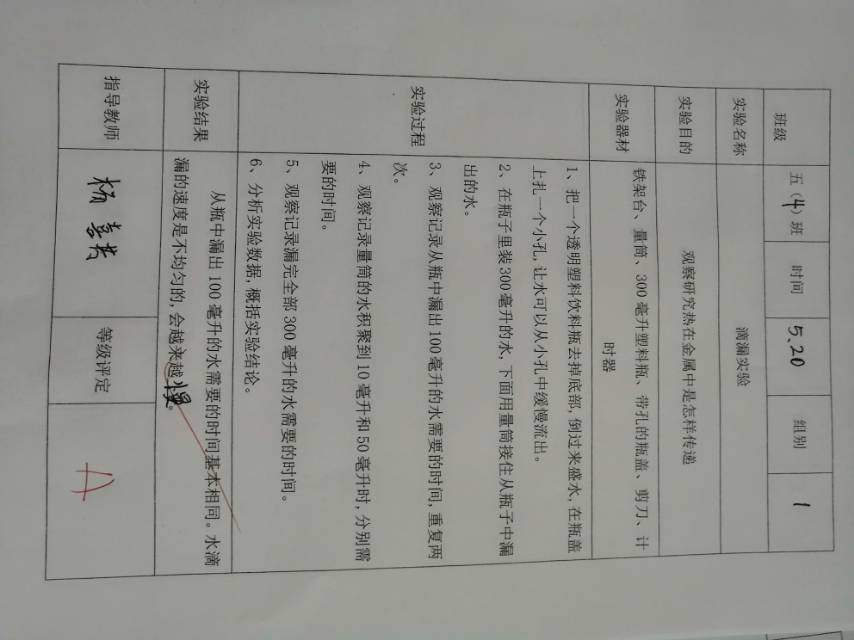 班级 五（4）班 时间 5.20 组别 1
实验名称 滴漏实验
实验目的 观察研究热在金属中是怎样传递
实验器材 铁架台、量筒、300毫升塑料瓶、带孔的瓶盖、剪刀、计
时器
实验过程
1、把一个透明塑料饮料瓶去掉底部,倒过来盛水,在瓶盖
上扎一个小孔,让水可以从小孔中缓慢流出。
2、在瓶子里装300毫升的水,下面用量筒接住从瓶子中漏
出的水。
3、观察记录从瓶中漏出100毫升的水需要的时间,重复两
次。
4、观察记录量筒的水积聚到10毫升和50毫升时,分别需
要的时间。
5、观察记录漏完全部300毫升的水需要的时间。
6、分析实验数据,概括实验结论。
实验结果
从瓶中漏出100毫升的水需要的时间基本相同。水滴
漏的速度是不均匀的,会越来越慢。
指导教师 杨 等级评定 A